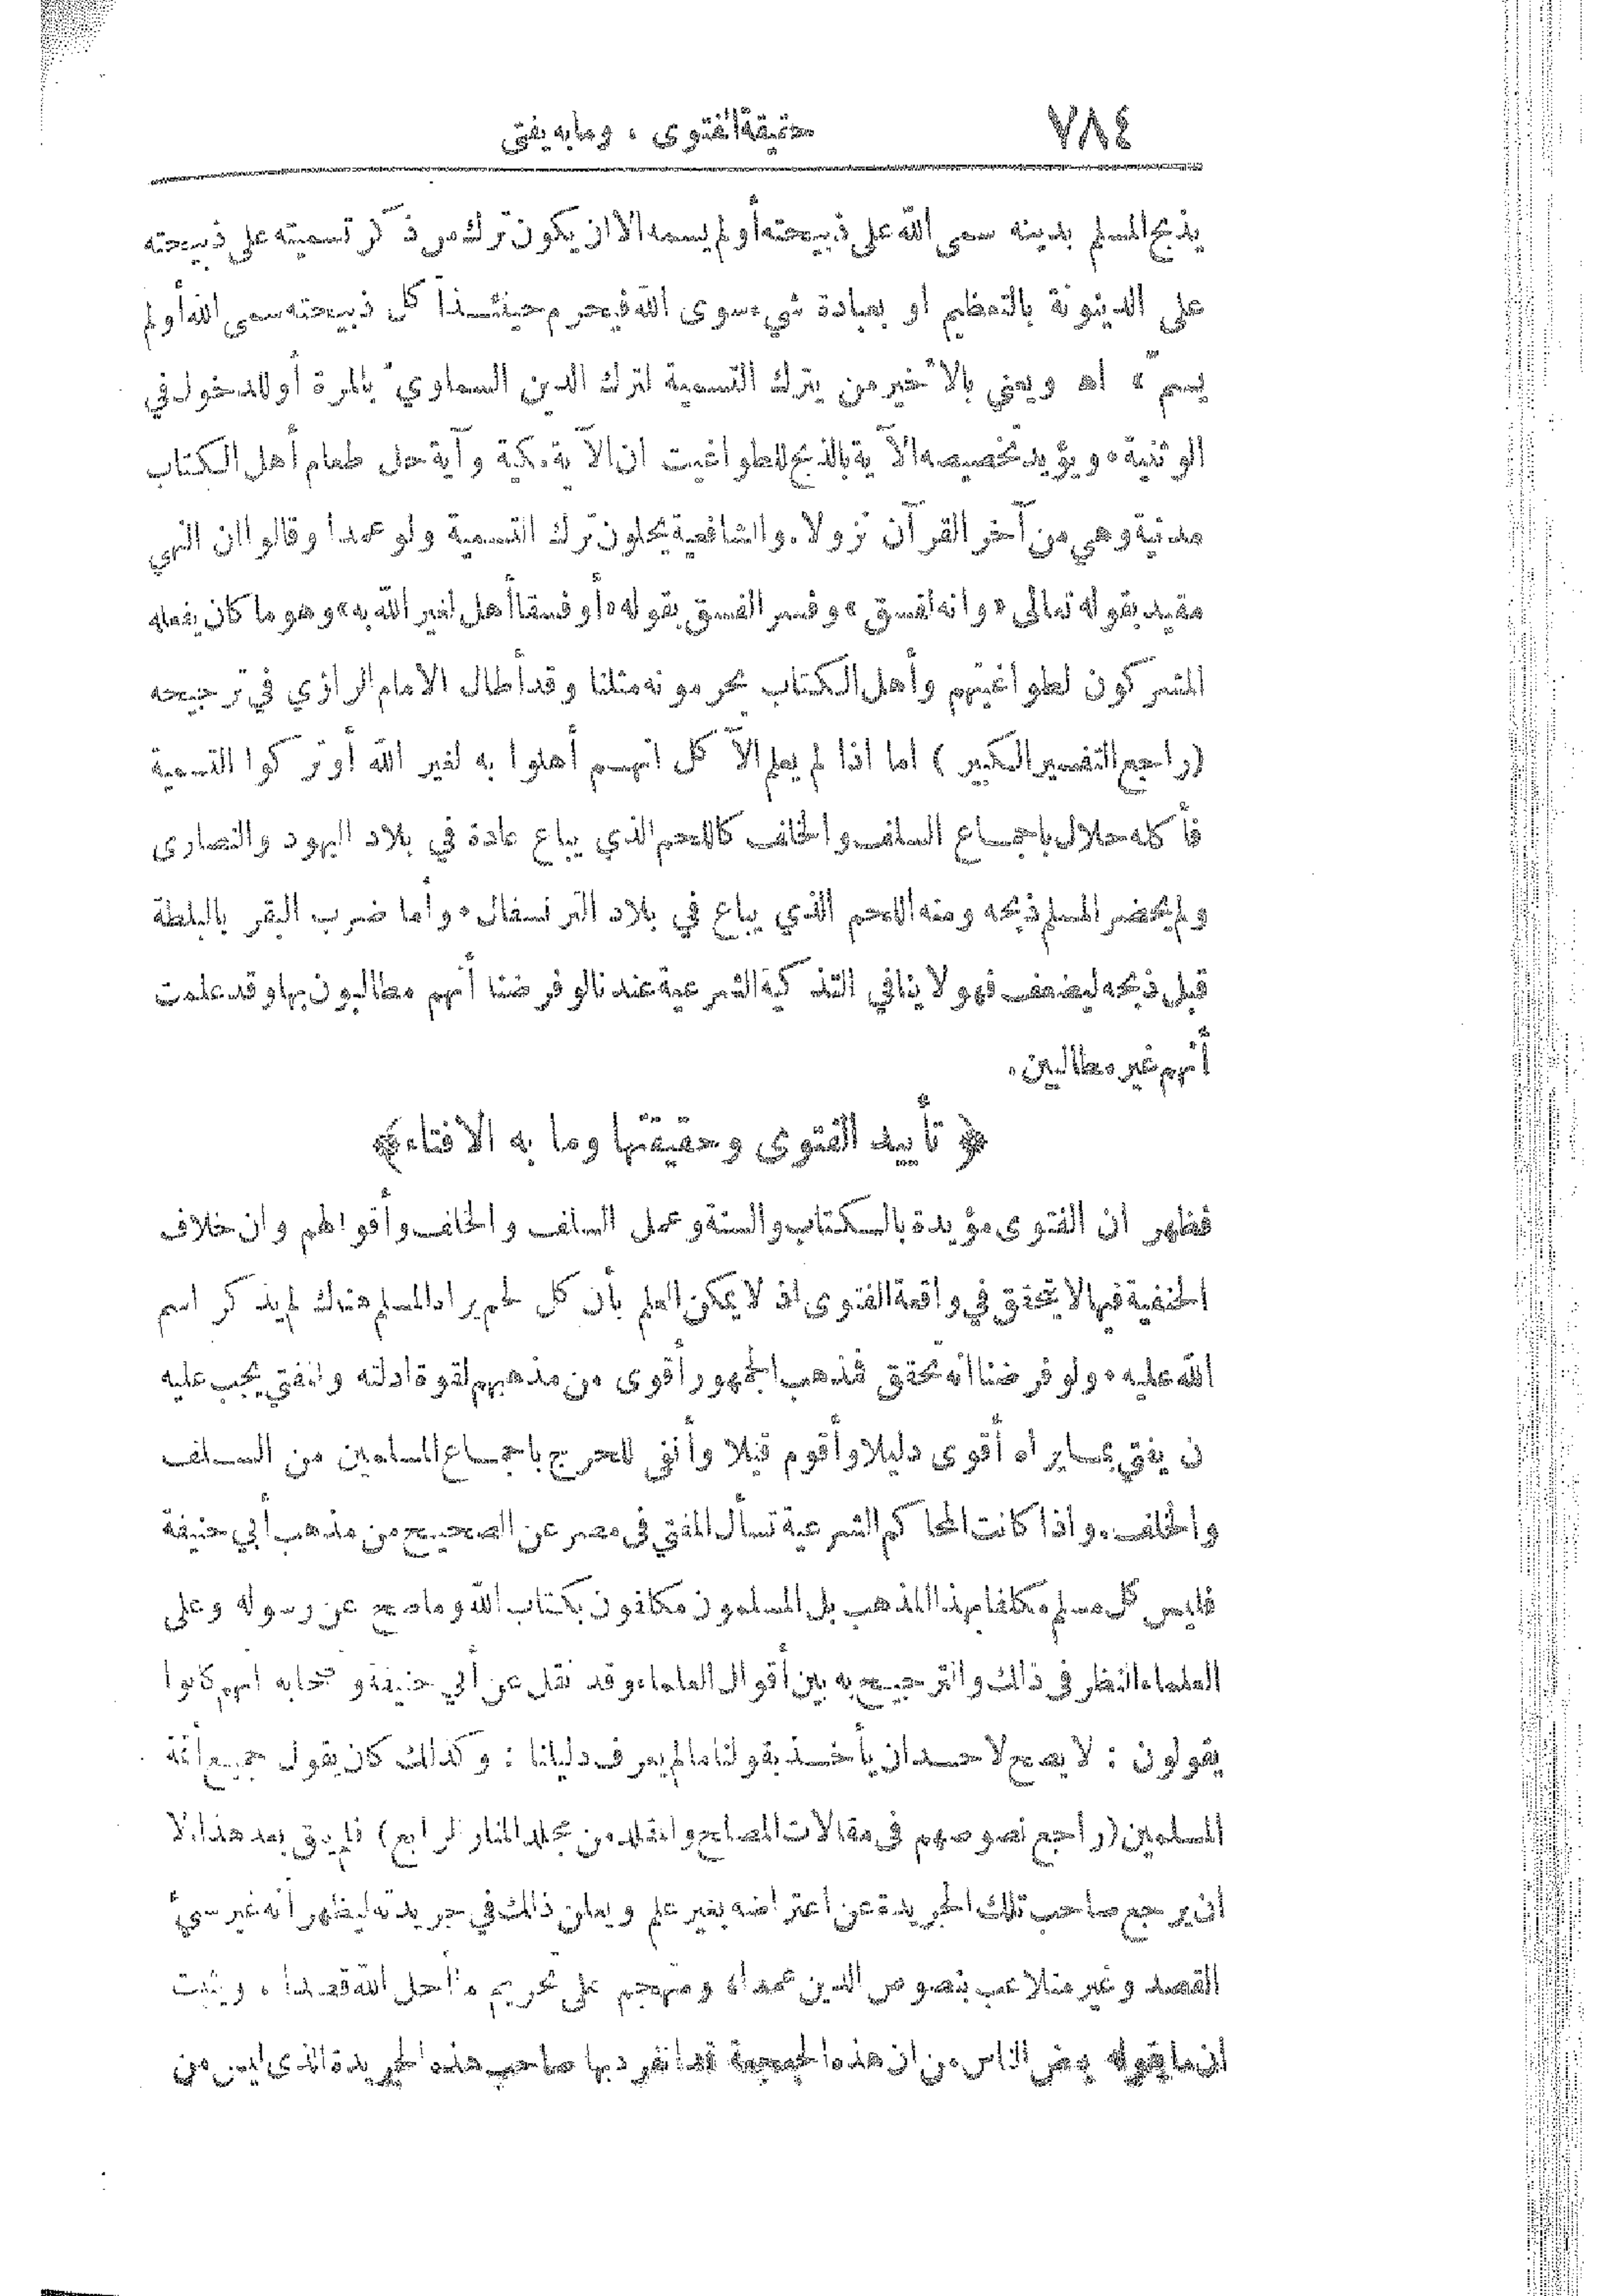 ٧٨٤ حقيقة الفتوى ، وما به يفتى
يذبح المسلم بدينه سمى الله على ذبيحته أو لم يسمه الا ان يكون ترك من ذكر تسميته على ذبيحته
على الدينونة بالتعظيم او بعبادة شيء سوى الله فيحرم حينئذ أكل ذبيحته سمى الله أو لم
يسمّ » اه ويعني بالأخير من يترك التسمية لترك الدين السماوي بالمرة أو للدخول في
الوثنية ، ويؤيد تخصيصه الآية بالذبح للطواغيت ان الآية مكية وآية حل طعام أهل الكتاب
مدنية وهي من آخر القرآن نزولا . والشافعية يحلون ترك التسمية ولو عمدا وقالوا ان النهي
مقيد بقوله تعالى « وانه لفسق » وفسر الفسق بقوله « أو فسقا أهل لغير الله به » وهو ما كان يفعله
المشركون لطواغيتهم وأهل الكتاب يحرمونه مثلنا وقد أطال الامام الرازي في ترجيحه
( راجع التفسير الكبير ) اما اذا لم يعلم الآكل انهم أهلوا به لغير الله أو تركوا التسمية
فأكله حلال باجماع السلف والخلف كاللحم الذي يباع عادة في بلاد اليهود والنصارى
ولم يحضر المسلم ذبحه ومنه اللحم الذي يباع في بلاد الترنسفال ، وأما ضرب البقر بالبلطة
قبل ذبحه ليضعف فهو لا ينافي التذكية الشرعية عندنا لو فرضنا أنهم مطالبون بها وقد علمت
أنهم غير مطالبين .
﴿ تأييد الفتوى وحقيقتها وما به الافتاء ﴾
فظهر ان الفتوى مؤيدة بالكتاب والسنة وعمل السلف والخلف وأقوالهم وان خلاف
الحنفية فيها لا يتحقق في واقعة الفتوى اذ لا يمكن العلم بأن كل لحم يراه المسلم هنالك لم يذكر اسم
الله عليه ، ولو فرضنا أنه تحقق فمذهب الجمهور أقوى من مذهبهم لقوة ادلته والمفتي يجب عليه
ن يفتي بما يراه أقوى دليلا وأقوم قيلا وأنفى للحرج باجماع المسلمين من السلف
والخلف ، واذا كانت المحاكم الشرعية تسأل المفتي في مصر عن الصحيح من مذهب أبي حنيفة
فليس كل مسلم مكلفا بهذا المذهب بل المسلمون مكلفون بكتاب الله وما صح عن رسوله وعلى
العلماء النظر في ذلك والترجيح به بين أقوال العلماء وقد نقل عن أبي حنيفة وصحابه انهم كانوا
يقولون : لا يصح لاحد ان يأخذ بقولنا ما لم يعرف دليلنا : وكذلك كان يقول جميع أئمة
المسلمين ( راجع نصوصهم في مقالات المصلح والمقلد من مجلد المنار الرابع ) فلم يبق بعد هذا الا
ان يرجع صاحب تلك الجريدة عن اعتراضه بغير علم ويعلن ذلك في جريدته ليظهر أنه غير سيئ
القصد وغير متلاعب بنصوص الدين عمدا ، ومتهجم على تحريم ما أحل الله قصدا ، ويثبت
ان ما يقوله بعض الناس من ان هذه الجعجعة قد انفرد بها صاحب هذه الجريدة الذي ليس من